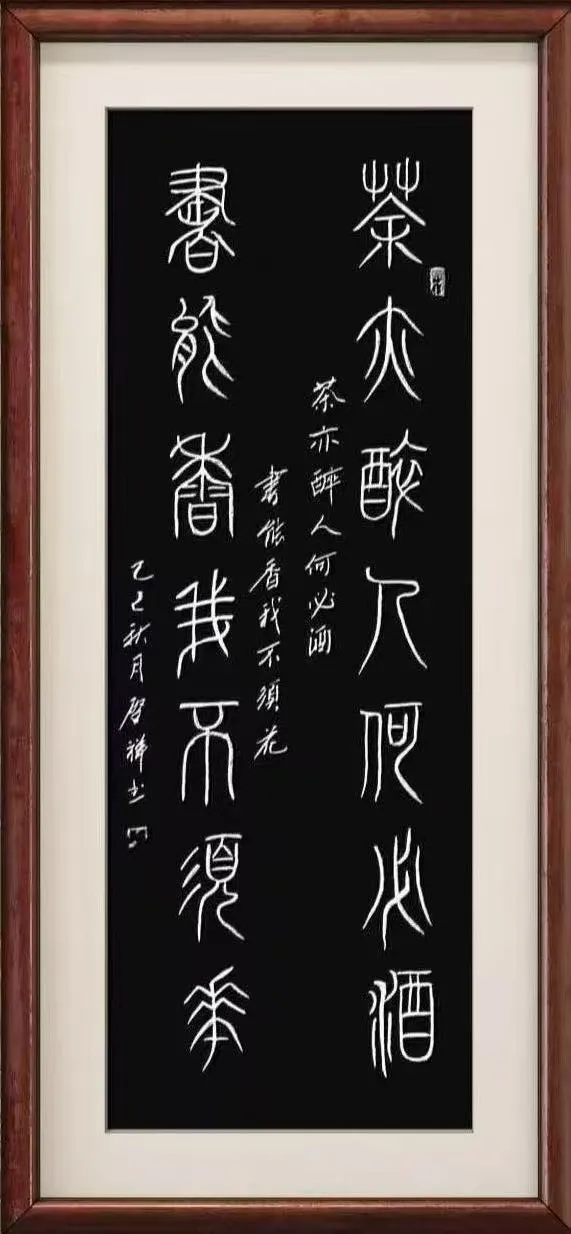 茶亦醉人何必酒
茶亦醉人何必酒
書能香我不須花
書能香我不須華
乙巳秋月啓祥书